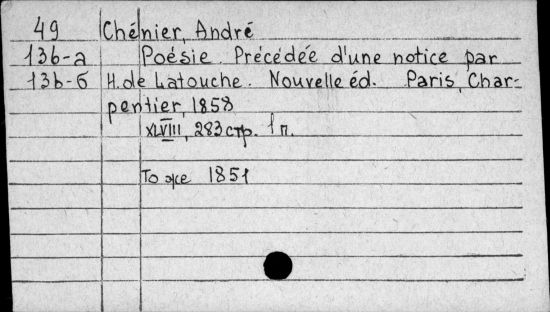 49 Chénier, André
13b-a Poésie. Précédée d'une notice par
13b-б H. de Latouche. Nouvelle éd. Paris, Char-
pentier, 1858
XLVIII, 283 стр. 1 п.
То же 1851